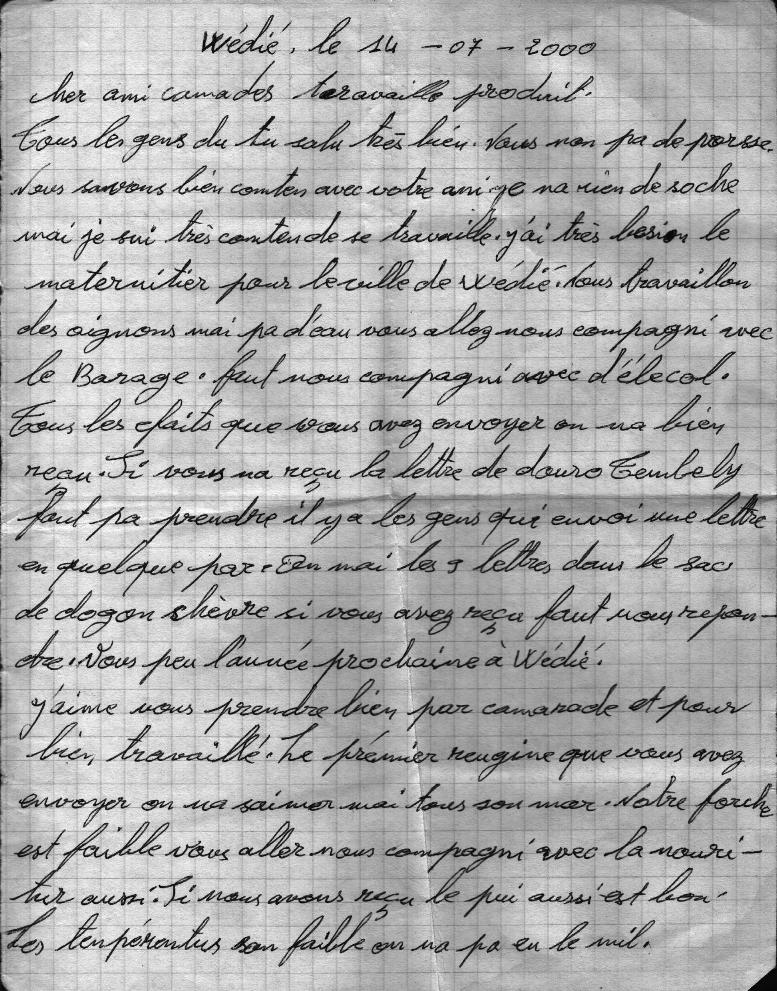 Wédié, le 14 - 07 - 2000
cher ami camades travaille produit.
Tous les gens du tu salu très bien. Vous non pa de porsse.
Nous savons bien comten avec votre ani. je na rien de soche
mai je sui très comten de se travaille. j'ai très besion le
maternitier pour le ville de Wédié. Nous travaillon
des oignons mai pa d'éau vous allez nous compagni avec
le Barage. faut nous compagni avec d'élecol.
Tous les efaits que vous avez envoyer on na bien
reçu. Si vous na reçu la lettre de douro Tembely
faut pa prendre il y a les gens qui envoi une lettre
en quelque par. On mai les 3 lettres dans le sac
de dogon shèvre si vous avez reçu faut nous repon-
dre. Vous peu l'année prochaine à Wédié.
j'aime vous prendre bien par camarade et pour
bien travaillé. Le prémier reugine que vous avez
envoyer on na saimer mai tous son mor. Notre forche
est faible vous aller nous compagni avec la nouri-
tur aussi. Si nous avons reçu le pui aussi est bon.
Les tenpérentus son faible on na pa eu le mil.